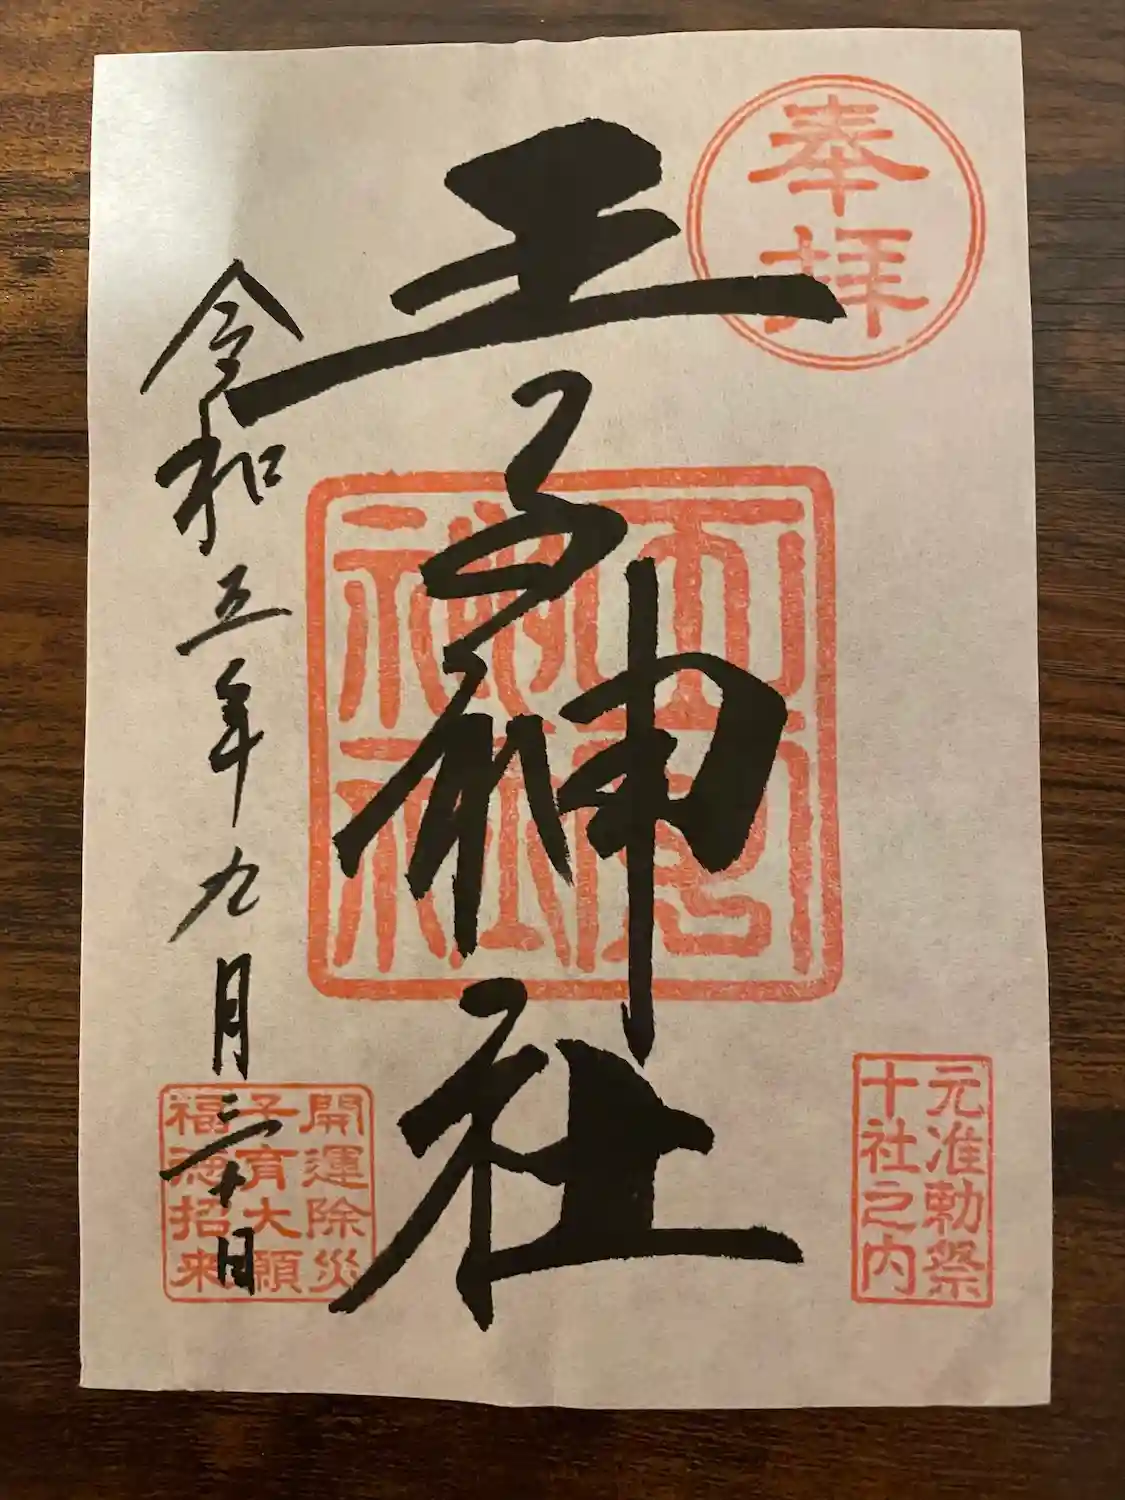 奉拝
元准勅祭
十社之内
王子神社
開運除災
子育大願
福徳招来
令和五年九月三十日